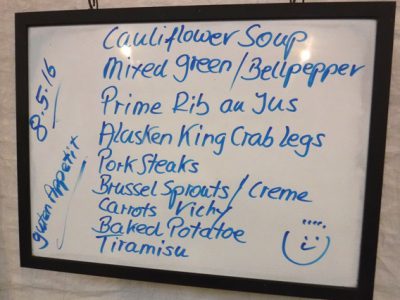 Cauliflower Soup
Mixed green/Bellpepper
Prime Rib au Jus
Alasken King Crab Legs
Pork Steaks
Brussel Sprouts/Creme
Carrots Vichy
Baked Potatoe
Tiramisu
8.5.16
guten Appetit